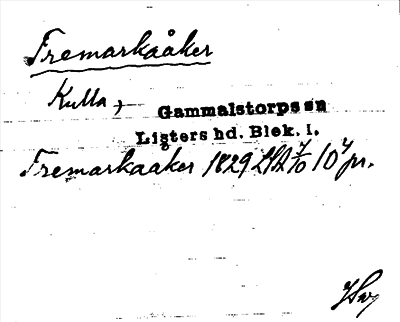 Fremarkaåker
Kulla,
Gammalstorps sn
Listers hd. Blek. l.
Fremarkaaker 1829 LSA 7/10 10 pr.